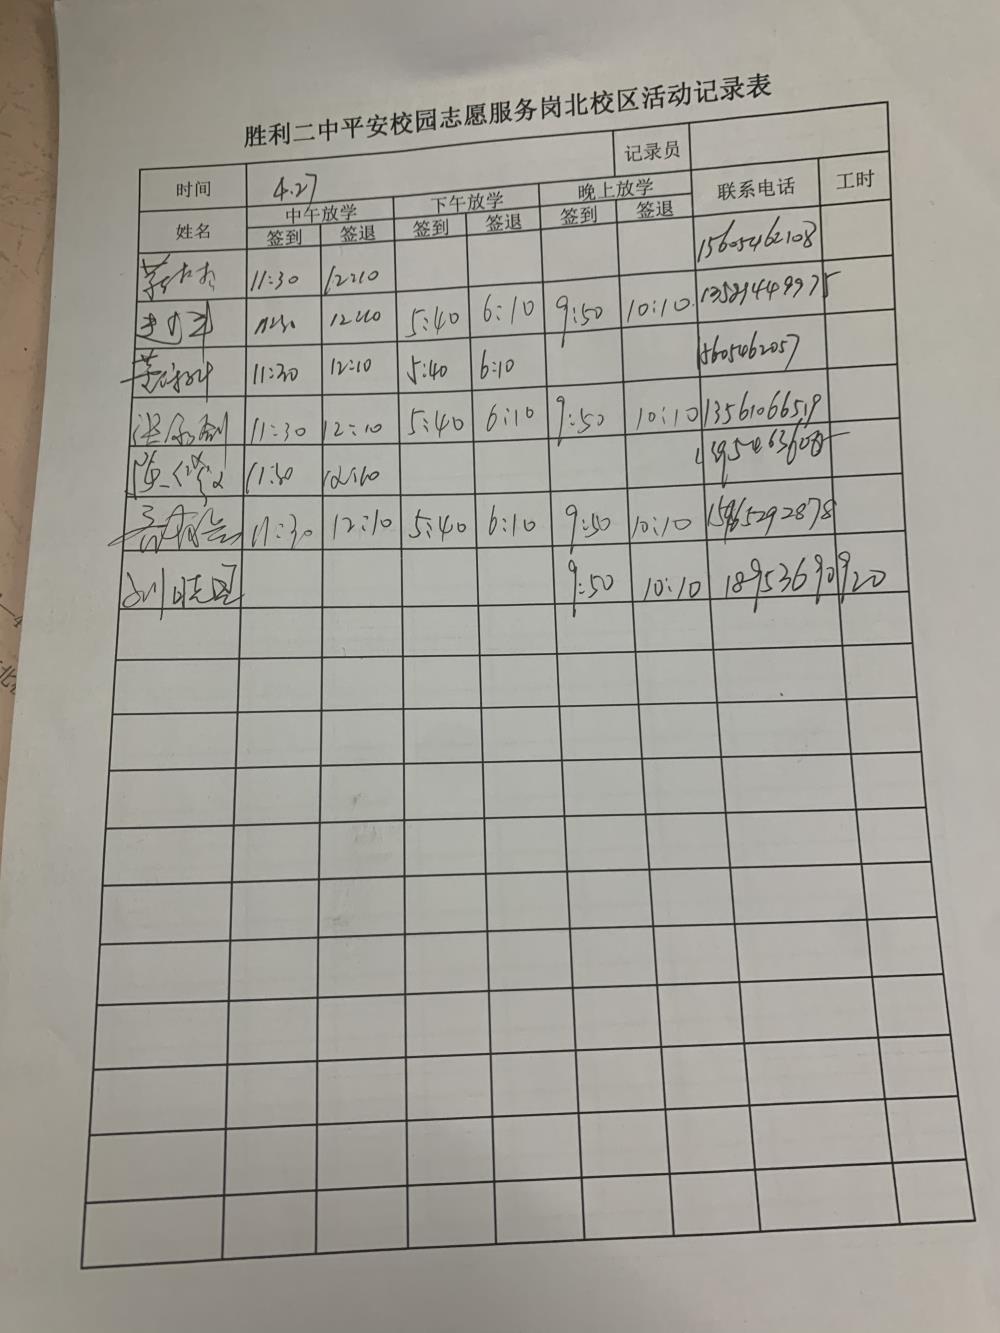 胜利二中平安校园志愿服务岗北校区活动记录表
时间 4.27 记录员
姓名 中午放学 下午放学 晚上放学 联系电话 工时
签到 签退 签到 签退 签到 签退
11:30 12:10 15605462108
11:30 12:10 5:40 6:10 9:50 10:10
11:30 12:10 5:40 6:10 15605462057
11:30 12:10 5:40 6:10 9:50 10:10 13561066519
11:30 12:10
11:30 12:10 5:40 6:10 9:50 10:10 15965292878
刘晓星 9:50 10:10 18953690920